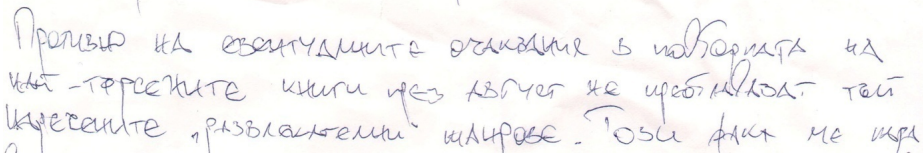 Противно на евентуалните очаквания в подборката на
най-търсените книги през август не преобладават тъй
наречените „развлекателни" жанрове. Този факт ме